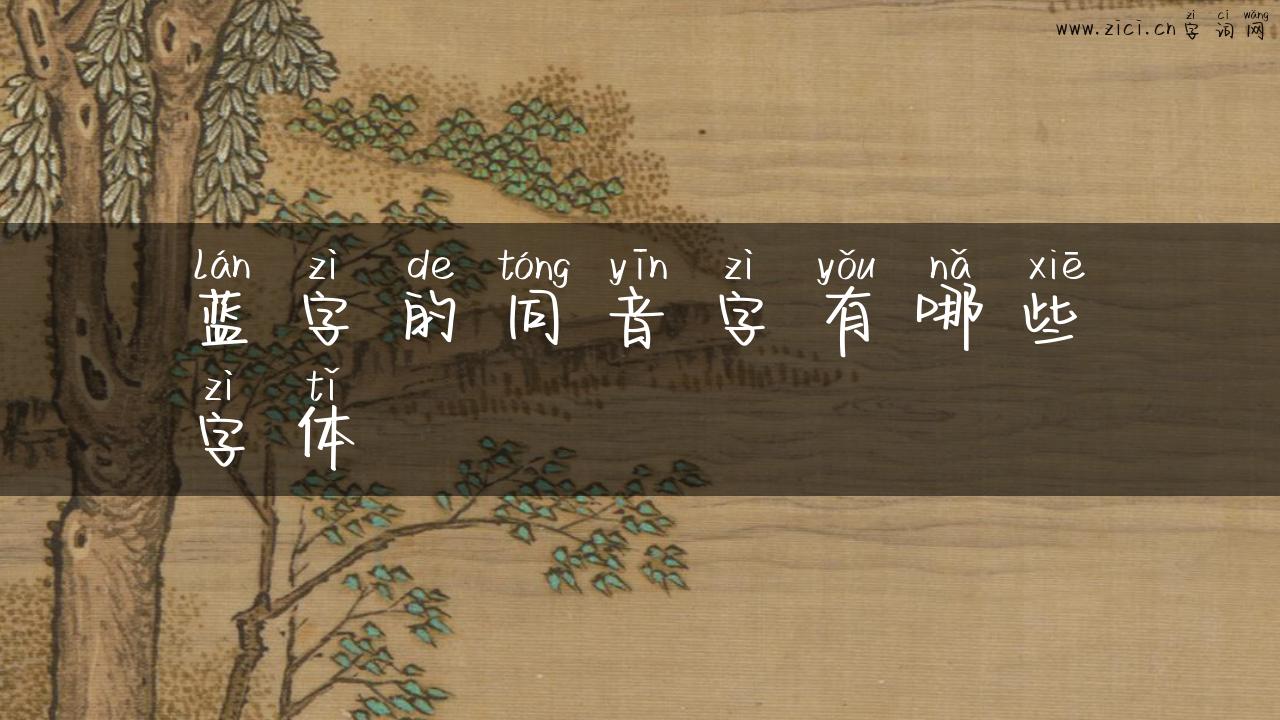 zì cí wǎng
www.zici.cn 字词网
lán zì de tóng yīn zì yǒu nǎ xiē
蓝字的同音字有哪些
zì tǐ
字体